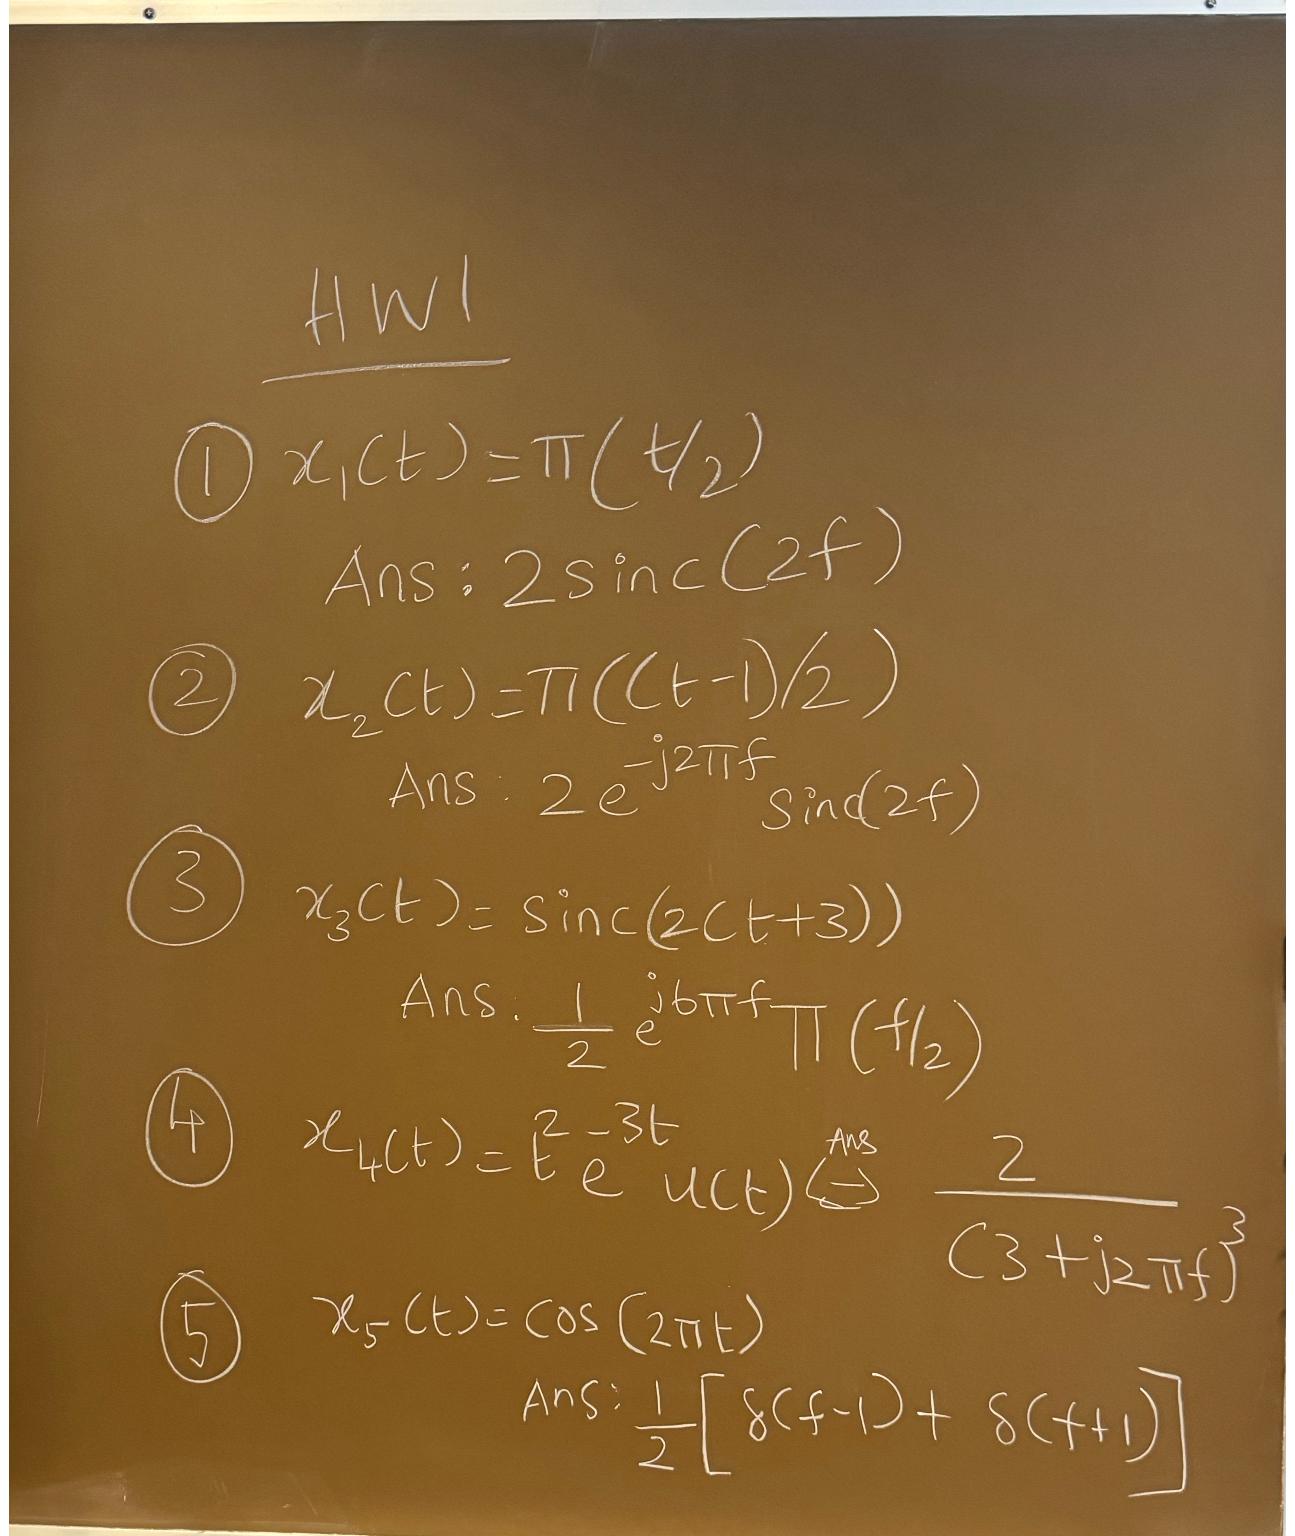 HW1
① x₁(t) = π(t/2)
Ans: 2 sinc(2f)
② x₂(t) = π((t-1)/2)
Ans: 2e^{-j2πf} sinc(2f)
③ x₃(t) = sinc(2(t+3))
Ans. 1/2 e^{j6πf} π(f/2)
④ x₄(t) = t²e^{-3t} u(t) ⇔ Ans 2/(3+j2πf)³
⑤ x₅(t) = cos(2πt)
Ans: 1/2 [δ(f-1) + δ(f+1)]